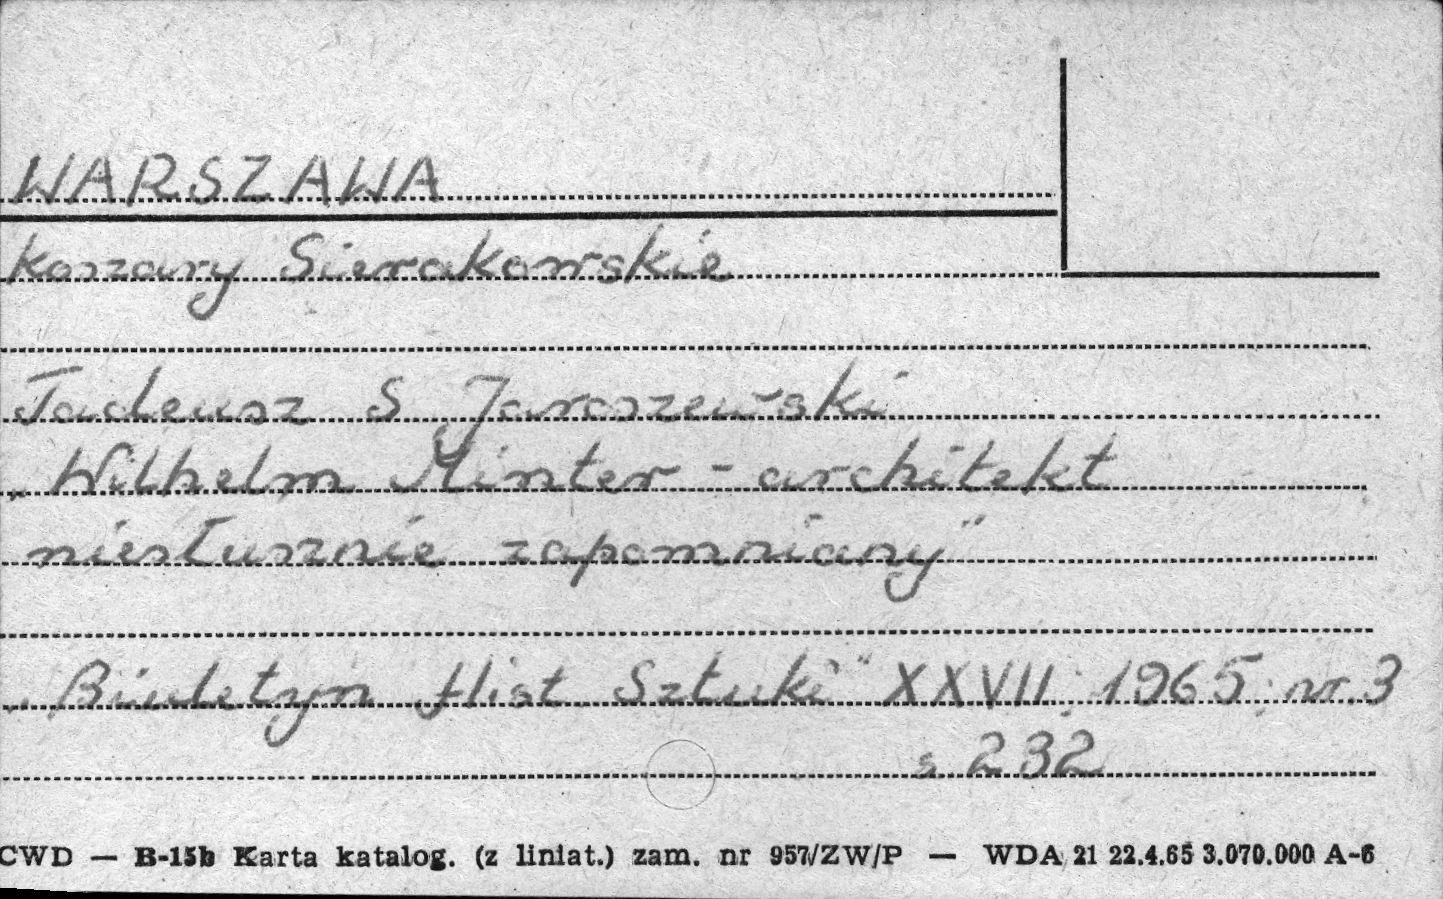 WARSZAWA
koszary Sierakowskie
Tadeusz S Jaroszewski
„Wilhelm Minter - architekt
niesłusznie zapomniany"
„Biuletyn Hist Sztuki" XXVII, 1965, nr 3
s. 232
CWD — B-15b Karta katalog. (z liniat.) zam. nr 957/ZW/P — WDA 21 22.4.65 3.070.000 A-6